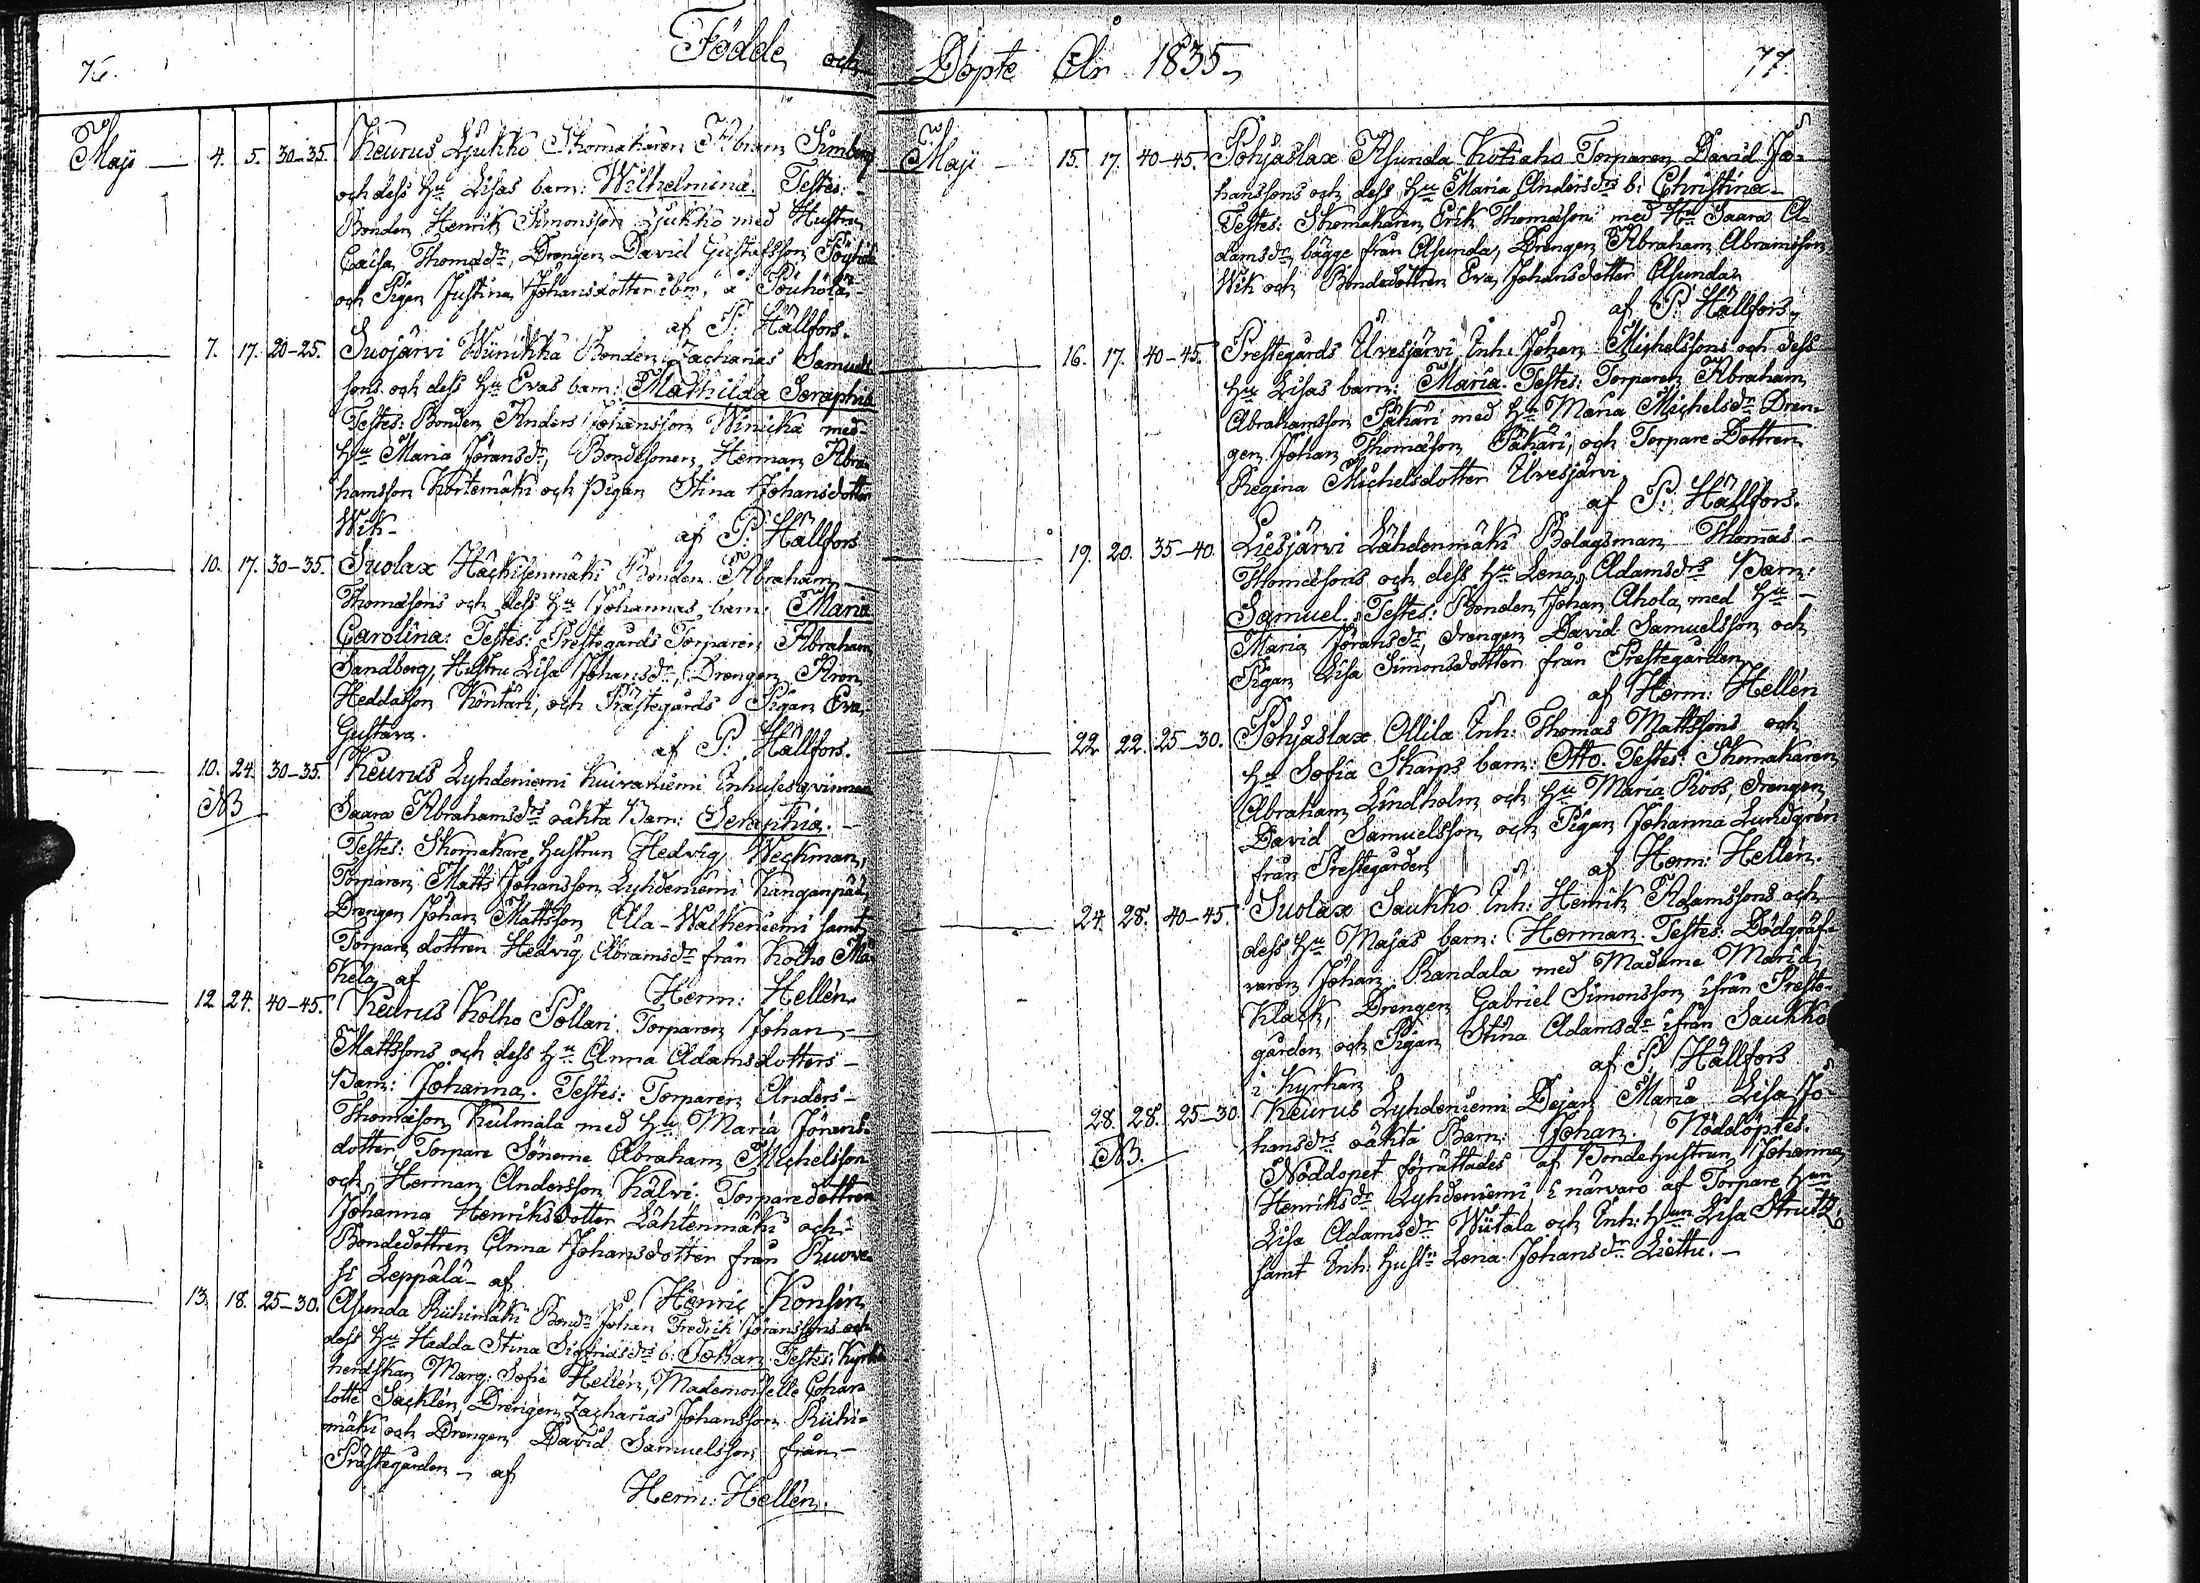 76.
Födde och
Maji — 4. 5. 30–35. Keurus Ljukko Skomakaren Abram Simberg
och dess Hu Lisas barn: Wilhelmina. Testes:
Bonden Henrik Simonsson Ljukko med Hustru
Caisa Thomædr, Drengen David Gustafsson
och Pigan Justina Johansdotter ibm, a Pöuhölä
af P: Hällfors.
7. 17. 20–25. Suojärvi Wünikka Bonden Zacharias Samuels
sons och dess Hu Evas barn: Mathilda Seraphia
Testes: Bonden Anders Johansson Winicka med
Hu Maria Jöransdr, Bondesonen, Herman Abra
hamsson Kortemäki och pigan Stina Johansdotter
Wik– af P: Hällfors
10. 17. 30–35. Suolax Häckisenmäki Bonden Abraham
Thomæsons och dess Hu Johannas barn: Maria
Carolina: Testes: Prestegårds Torparen Abraham
Sandberg, Hustru Lisa Johansdr, Drengen Aron
Heddasson Köntäri, och Prästegårds Pigan Eva
Gustava. af P: Hällfors.
10. 24. 30–35. Keurus Lyhdeniemi Kuivaniemi Inhysesqvinnan
NB Saara Abrahamsdrs oäkta Barn: Seraphia. –
Testes: Skomakare hustrun Hedvig Weckman,
Torparen Matts Johansson Lyhdeniemi Kanganpää
Drengen Johan Mattsson Ala-Walkeniemi samt
Torpare dottren Hedvig Abramsdr från Kolho Mä
kelä af Herm: Hellén.
12 24. 40–45. Keurus Kolho Pollari Torparen Johan
Mattssons och dess Hu Anna Adamsdotters –
Barn: Johanna. Testes: Torparen Anders
Thomæson Kulmala med Hu Maria Jörans
dotter Torpare Sönerne Abraham Michelsson
och Herman Andersson Kälvi: Torparedottren
Johanna Henriksdotter Lähtenmäki och
Bondedottren Anna Johansdotter från Ruove
si Leppälä – af Henric Konsin
13. 18. 25–30. Asunda Riihimäki Bondn Johan Fredrik Jöranssons och
dess Hu Hedda Stina Sigfridsdrs b: Johan Testes: Kyrko
herdskan Marg: Sofie Hellén, Mademoiselle Char
lotte Sacklén, Drengen Zacharias Johansson Riihi=
mäki och Drengen David Samuelsson från –
Prästegården – af
Herm: Hellén.
Döpte År 1835 77.
Maji – 15. 17. 40–45. Pohjaslax Asunda Kotiaho Torparen David Jo=
hanssons och dess Hu Maria Andersdrs b: Christina –
Testes: Skomakaren Erik Thomæson med Hu Saara A=
damsdr, bägge från Asunda, Drengen Abraham Abramsson
Wik och Bondedottren Eva Johansdotter Asunda
af P: Hällfors
16. 17. 40–45. Prestegårds Ulvesjärvi Inh: Johan Michelssons och dess
Hu Lisas barn: Maria. Testes: Torparen Abraham
Abrahamsson Päkäri med Hu Maria Michelsdr Dren=
gen Johan Thomæson Päkäri, och Torpare Dottren
Regina Michelsdotter Ulvesjärvi
af P: Hällfors.
19. 20. 35–40. Liesjärvi Lähdenmäki Bolagsman Thomas
Thomæsons och dess Hu Lena Adamsdrs Barn:
Samuel. Testes: Bonden Johan Ahola med Hu –
Maria Jöransdr, drengen David Samuelsson och
Pigan Lisa Simonsdotter från Prestegården
af Herm: Hellén
22. 22. 25–30. Pohjaslax Ollila Inh: Thomas Mattssons och
Hu Sofia Skarps barn: Otto. Testes: Skomakaren
Abraham Lindholm och Hu Maria Roos, drengen
David Samuelsson och Pigan Johanna Lundgrén
från Prestegården af Herm: Hellén.
24. 28. 40–45. Suolax Saukko Inh: Henrik Adamssons och
dess Hu Majas barn: Herman. Testes: Dödgräf=
varen Johan Randala med Madame Maria
Klack, Drengen Gabriel Simonsson ifrån Preste=
gården och Pigan Stina Adamsdr ifrån Saukko
i kyrkan af P. Hällfors
28. 28. 25–30 Keurus Lyhdeniemi Dejan Maria Lisa Jo=
NB. hansdrs oäkta Barn: Johan. Nöddöptes.
Nöddopet förrättades af Bondehustrun Johanna
Henriksdr Lyhdeniemi i närvaro af Torpare Hun
Lisa Adamsdr Wiitala och Inh: Hun Lisa Strutz
samt Inh: hustr Lena Johansdr Liettu. –